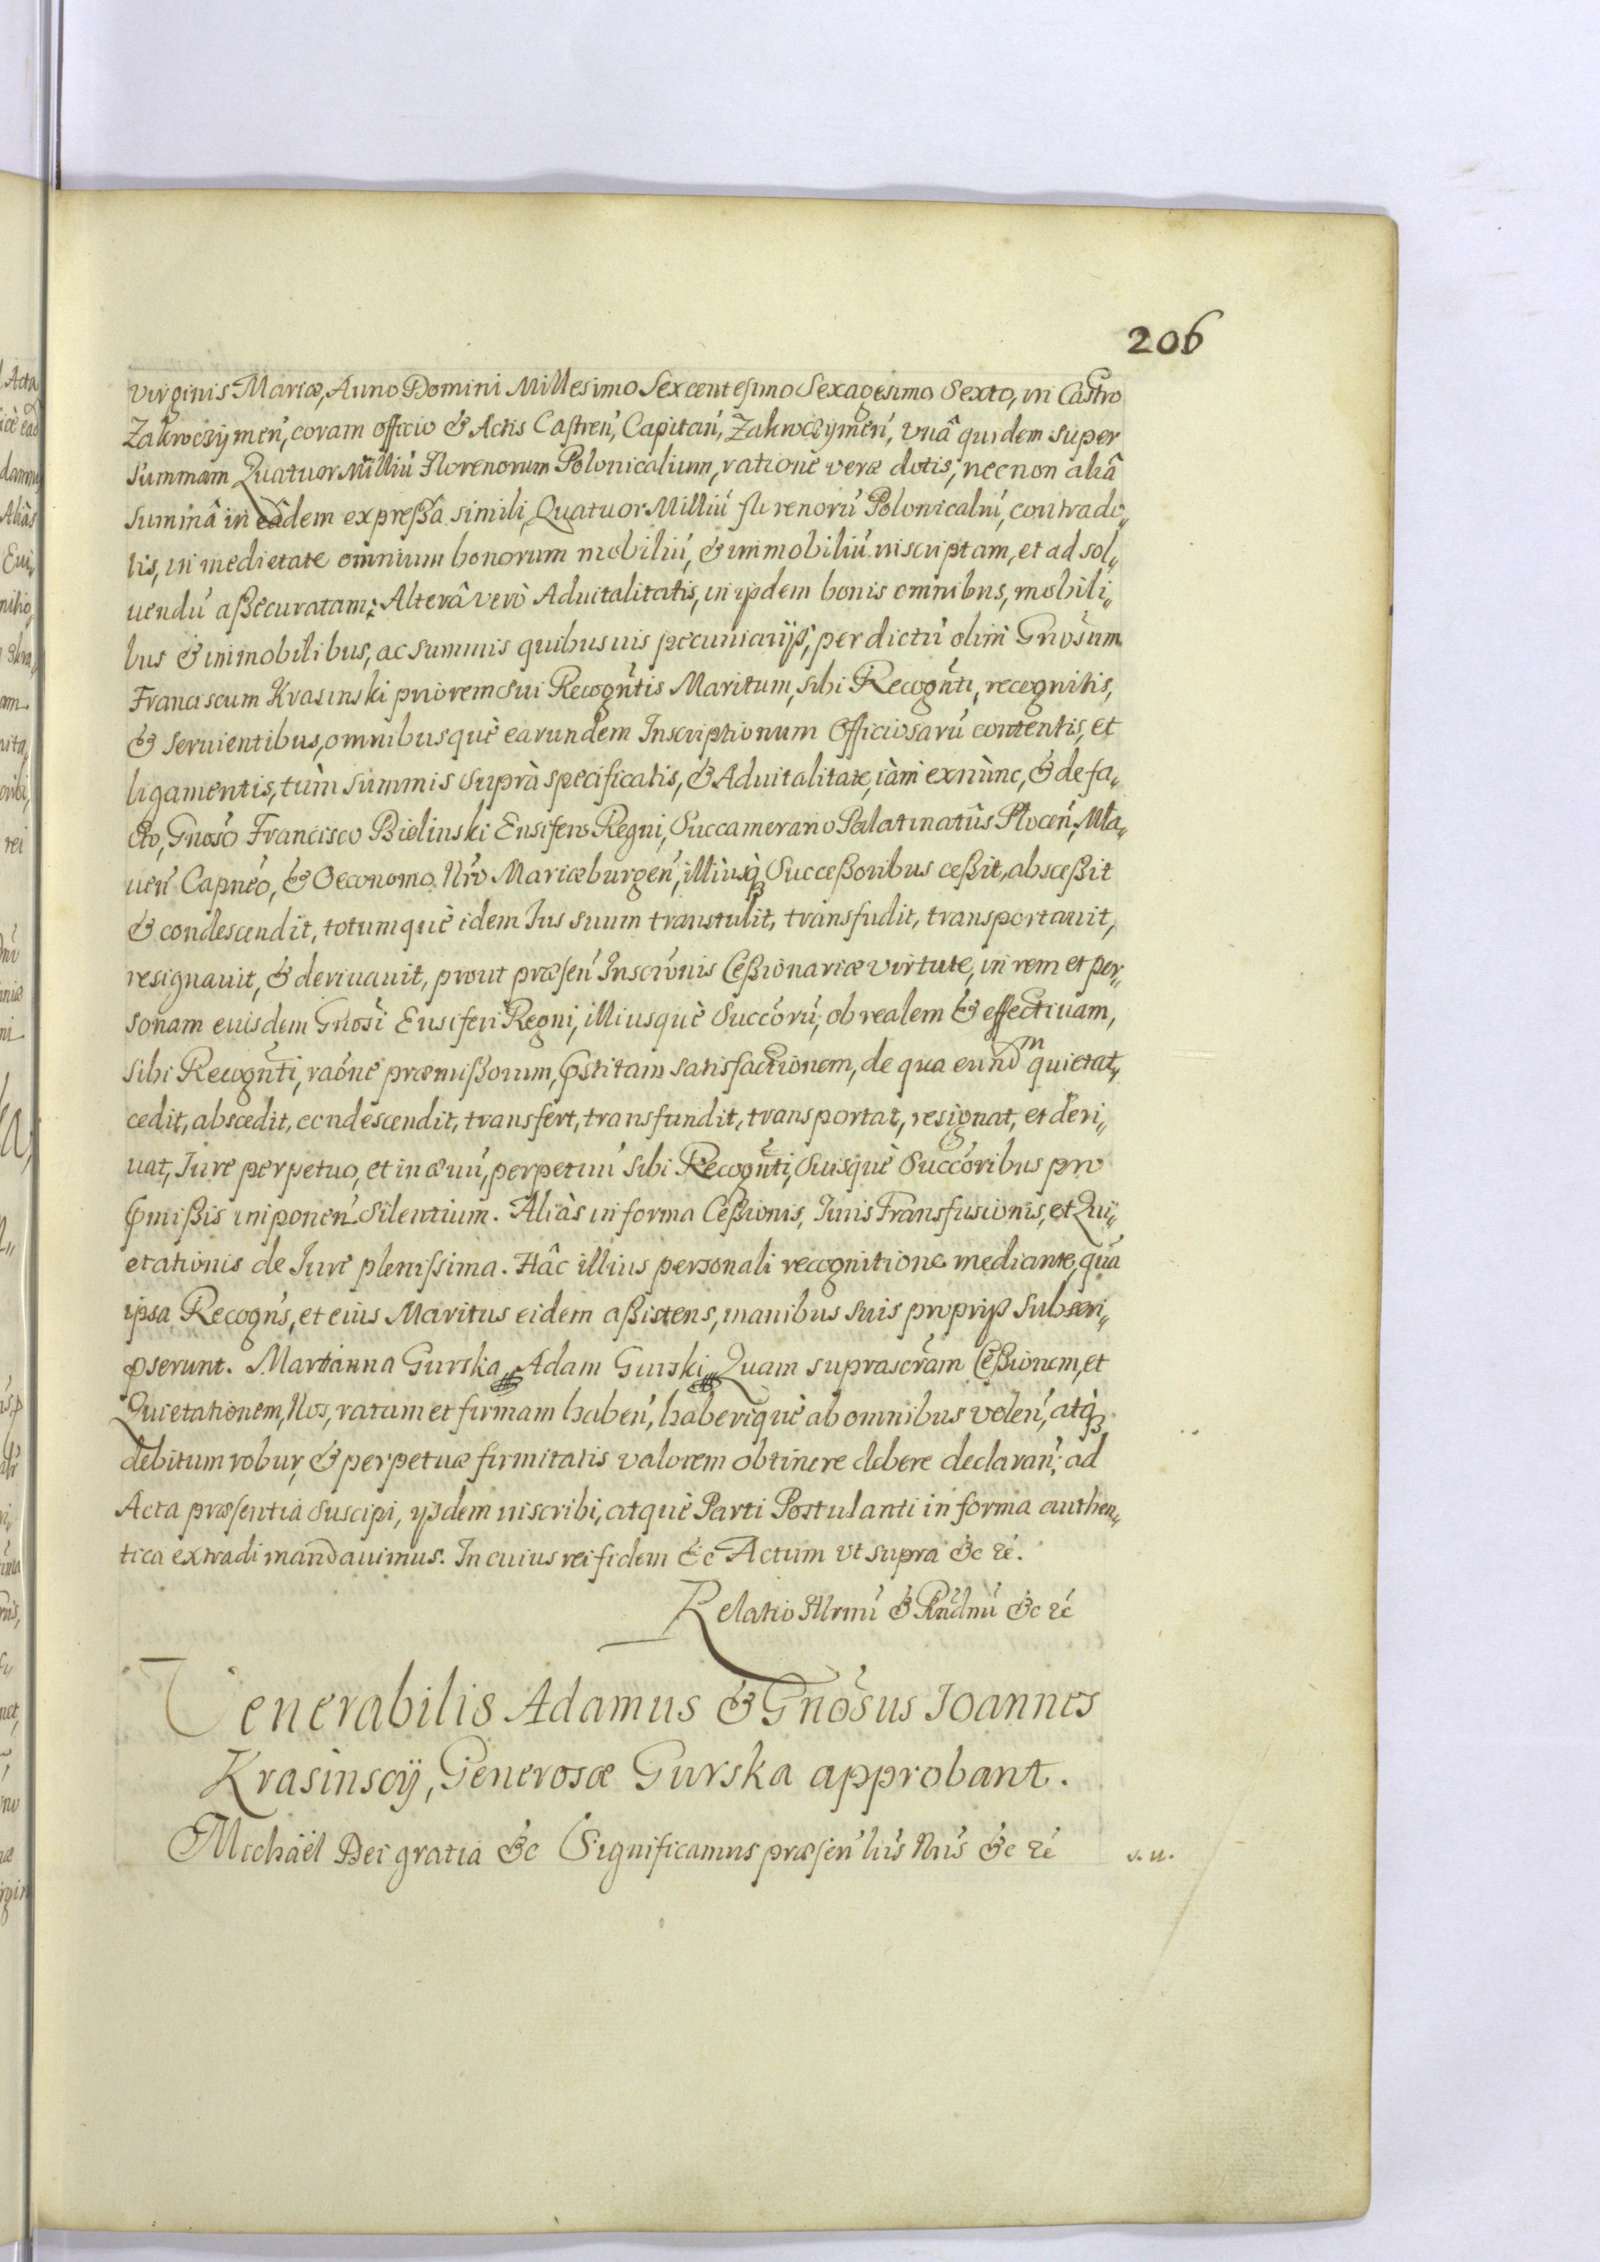 206
Virginis Mariæ, Anno Domini Millesimo Sexcentesimo Sexagesimo Sexto, in Castro
Zakroczymeń, coram officio & Actis Castreń, Capitań, Zakroczymeń, vnâ quidem super
summam Quatuor Milliu Florenorum Polonicalium, ratione veræ dotis; necnon aliâ
summâ in eâdem expreßâ simili, Quatuor Milliú florenorú Polonicaliú, contrado„
tis, in medietate omnium bonorum mobiliú, & immobiliú inscriptam, et ad sol„
uendú aßecuratam; Alterâ verò Aduitalitatis, in ijsdem bonis omnibus, mobili„
bus & immobilibus, ac summis quibusuis pecuniarijs, per dictú olim Gnosum
Franciscum Krasinski priorem sui Recogñtis Maritum, sibi Recogñti, recognitis,
& seruientibus, omnibusquè earundem Inscriptionum Officiosarú contentis, et
ligamentis, tùm summis suprà specificatis, & Aduitalitate, iàm exnùnc, & de fa„
cto, Gnoso Francisco Bielinski Ensifero Regni, Succamerario Palatinatûs Płoceń, Mła„
ueń Capneo, & Oeconomo Nro Mariæburgeń, illiusq; Succeßoribus ceßit, absceßit
& condescendit, totumquè idem Ius suum transtulit, transfudit, transportauit,
resignauit, & deriuauit, prout præseń Inscronis Ceßionariæ virtute, in rem et per„
sonam euisdem Gnosi Ensiferi Regni, illiusquè Succorú, ob realem & effectiuam,
sibi Recogñti, raone præmißorum, pstitam satisfactionem, de qua eundm quietat,
cedit, abscedit, condescendit, transfert, transfundit, transportat, resignat, et deri„
uat, Iure perpetuo, et in æuú, perpetuú sibi Recogñti, Suisquè Succoribus pro
pmißis imponeń Silentium. Aliàs in forma Ceßionis, Iuris Transfusionis, et Qui„
etationis de Iure plenissima. Hâc illius personali recognitione mediante, quâ
ipsa Recogns, et eius Maritus eidem aßistens, manibus suis proprijs subscri„
pserunt. Marianna Gurska, Adam Gurski, Quam suprascram Ceßionem, et
Quietationem, Nos, ratam et firmam habeń, haberiquè ab omnibus voleń, atq;
debitum robur, & perpetuæ firmitatis valorem obtinere debere declarań, ad
Acta præsentia suscipi, ijsdem inscribi, atquè Parti Postulanti in forma authen„
tica extradi mandauimus. In cuius rei fidem &c Actum vt supra &c rc.
Relatio Illrmi & Rndmi &c rc
Venerabilis Adamus & Gnosus Ioannes
Krasinscÿ, Generosæ Gurska approbant.
Michaël Dei gratia &c Significamus præseń lris Nris &c rc